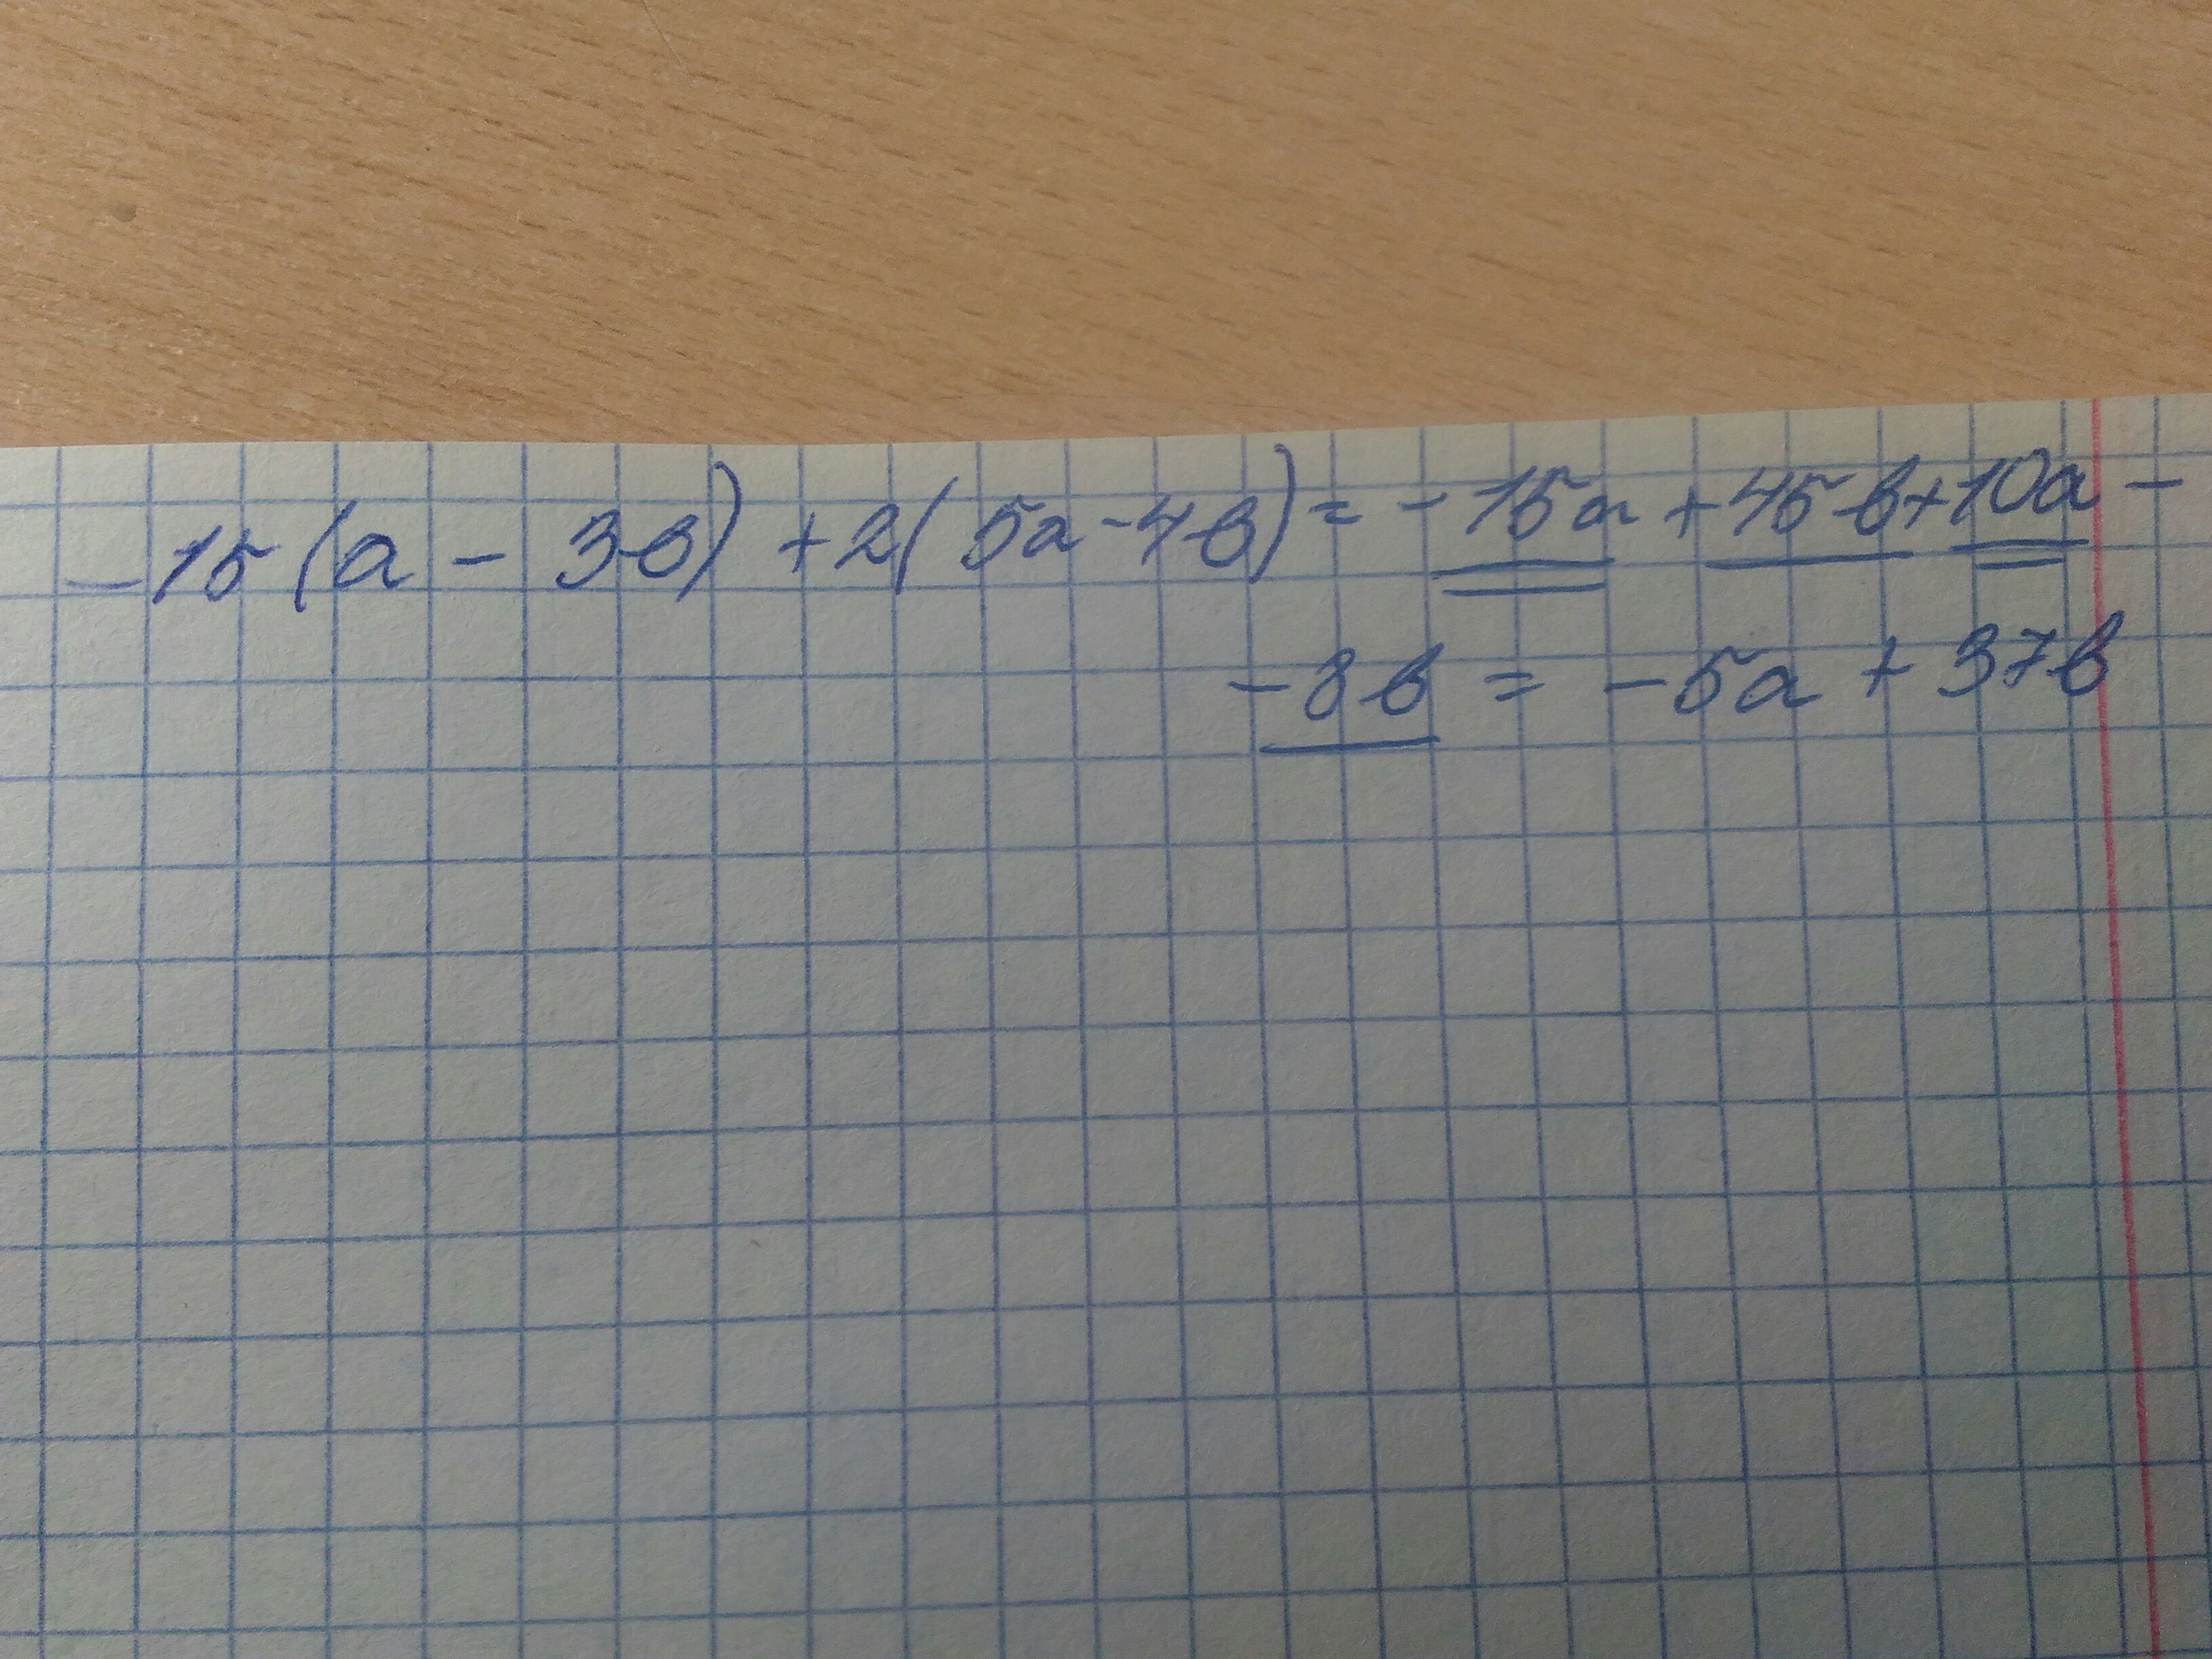 -15(a - 3b) + 2(5a - 4b) = -15a + 45b + 10a -
- 8b = -5a + 37b